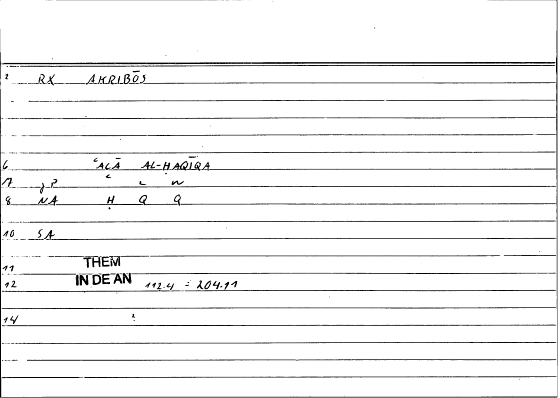 1 RX AKRIBŌS
6 ʿALĀ AL-ḤAQĪQA
7 gP ʿ L W
8 NA Ḥ Q Q
10 SA
11 THEM
12 IN DE AN 112.4 = 204.11
14